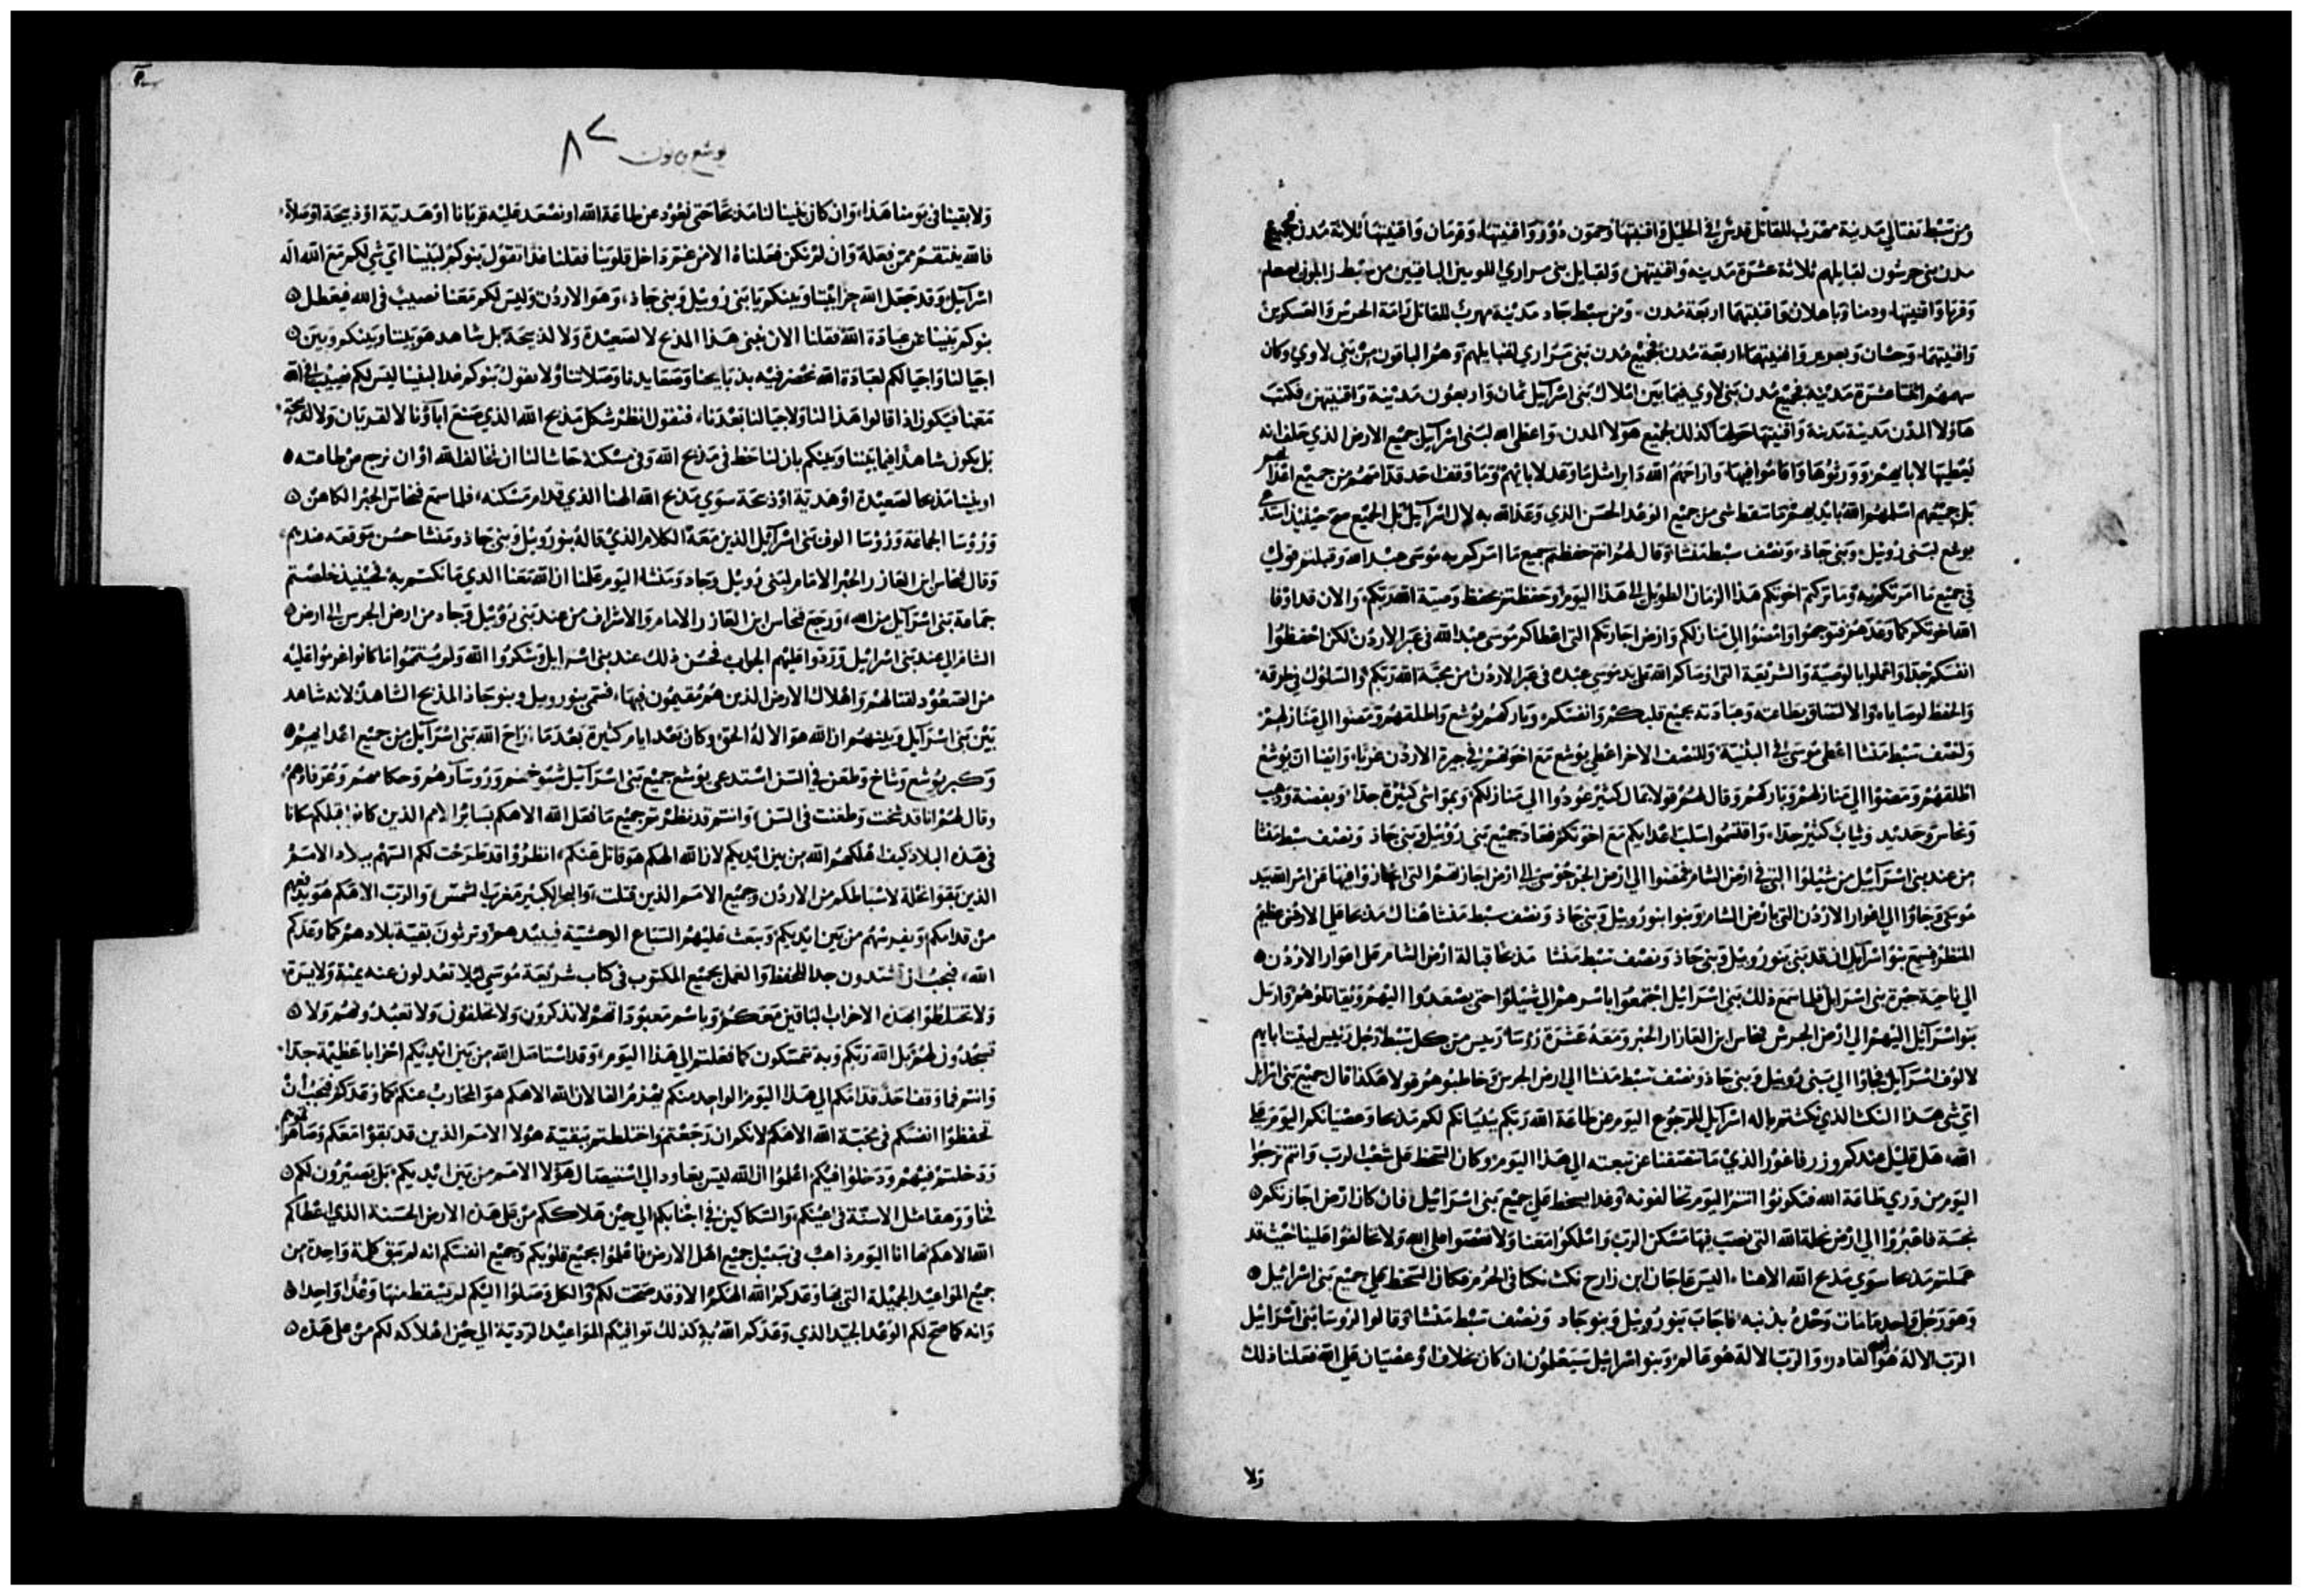 ومن سبط نفتالي مدينة مهرب للقاتل قدش في الجليل واقنيتها وحمون دوور واقنيتها، وقرمان واقنيتها ثلاثة مدن فجميع
مدن بني جرشون لقبايلهم ثلاثة عشرة مدينه واقنيتهن ولقبايل بني مراري اللويين الباقيين من سبط زابلون
واقنيتها اربعة مدن ومن سبط جاد مدينة مهرب للقاتل رامة الجرش والعسكرين
واقنيتهما، وحسان واقنيتهما، اربعة مدن فجميع مدن بني مراري لقبايلهم وهم الباقون من بني لاوي وكان
سهمهم اثنتا عشرة مدينة فجميع مدن بني لاوي فيما بين املاك بني اسرآيل ثمان واربعون مدينة واقنيتهن
هاولا المدن مدينة مدينة واقنيتها حولها كذلك لجميع هولا المدن واعطى الله لبني اسرآيل جميع الارض الذي حلف انه
يعطيها لابايهم وورثوها واقاموا فيها، واراحهم الله دايرا مثل ما وعد لابايهم وما وقف احد قدامهم من جميع اعدا
بل جميعهم اسلمهم الله بايديهم فما سقط شي من جميع الوعد الحسن الذي وعد الله به لال اسرآيل بل الجميع صح حينيذ
يوشع لبني روبيل وبني جاد، ونصف سبط منشا وقال لهم انتم حفظتم جميع ما امركم به موسى عبد الله وقبلتم قولي
في جميع ما امرتكم به وما تركتم اخوتكم هذا الزمان الطويل الى هذا اليوم وحفظتم بحفظ وصية الله ربكم، والان قد اوفا
الله اخوتكم كما وعدهم فتوجهوا وامضوا الى منازلكم وارض اجازتكم التي اعطاكم موسى عبد الله في عبر الاردن لكن احفظوا
انفسكم جدا واعملوا بالوصية والشريعة التي اوصاكم الله على يد موسى عبده في عبر الاردن من محبة الله ربكم والسلوك في طرقه
والحفظ لوصاياه والالتصاق بطاعته وعبادته بجميع قلبكم وانفسكم، وباركهم يوشع واطلقهم ومضوا الي منازلهم
ولنصف سبط منشا اعطى موسى في البثنية، وللنصف الاخر اعطي يوشع مع اخوتهم في جيرة الاردن غربا، وايضا ان يوشع
اطلقهم ومضوا الي منازلهم وباركهم وقال لهم قولا بمال كثير عودوا الي منازلكم وبمواشي كثيرة جدا، وبفضة وذهب
ونحاس وحديد وثياب كثير جدا، واقتسموا سلب اعدايكم مع اخوتكم فعاد جميع بني روبيل وبني جاد ونصف سبط منشا
من عند بني اسرآيل من شيلوا التي في ارض الشام فمضوا الي ارض الجرش الي ارض اجازتهم التي انحازوا فيها عن امر الله بيد
موسى وجاوا الي اغوار الاردن التي بارض الشام وبنوا بنو روبيل وبني جاد ونصف سبط منشا هناك مذبحا على الارض عظيم
المنظر فسمع بنو اسرآيل ان قد بني بنو روبيل وبني جاد ونصف سبط منشا مذبحا قبالة ارض الشام على اغوار الاردن
الي ناحية جيرة بني اسرايل فلما سمع ذلك بني اسرايل اجتمعوا باسرهم الى شيلوا حتى يصعدوا اليهم ويقاتلوهم وارسل
بنو اسرآيل اليهم الي ارض الجرش فنحاس ابن العازار الحبر ومعه عشرة روسا، رييس من كل سبط رجل رييس لبيت ابايهم
لالوف اسرآيل فجاوا الي بني روبيل وبني جاد ونصف سبط منشا الي ارض الجرس وخاطبوهم قولا هكذا قال جميع بني اسرايل
اي شي هذا النكث الذي نكثتم باله اسرآيل للرجوع اليوم عن طاعة الله ربكم ببنيانكم لكم مذبحا وعصيانكم اليوم على
الله، هل قليل عندكم وزر فاغور الذي ما تنظفنا عن تبعته الي هذا اليوم وكان السخط على شعب الرب وانتم ترجعوا
اليوم من وري طاعة الله فتكونوا انتم اليوم تخالفونه وغدا يسخط علي جميع بني اسرائيل فان كان ارض اجازتكم
نجسة فاعبروا الي ارض نحلة الله التي نصب فيها مسكن الرب واملكوا معنا ولا تعصوا على الله ولا تخالفوا علينا حيث قد
عملتم مذبحا سوي مذبح الله الاهنا، اليس عاجان ابن زارح نكث نكثا في الحرم فكان السخط على جميع بني اسرائيل
وهو رجل واحد ما مات وحده بذنبه فاجاب بنو روبيل وبنو جاد ونصف سبط منشا وقالوا لروسا بني اسرائيل
الرب الاله هو الله القادر، والرب الاله هو عالم وبنو اسرائيل سيعلمون ان كان بخلاف او عصيان على الله فعلنا ذلك
ولا
يوشع بن نون
٨٧
ولا بقينا في يومنا هذا، وان كان بنينا لنا مذبحا حتى نعود عن طاعة الله او نصعد عليه قربانا او هدية او ذبيحة او صلاة
فالله ينتقم ممن فعله وان لم نكن فعلناه الا من غم داخل قلوبنا فعلنا غدا تقول بنوكم لبنينا اي شي لكم مع الله اله
اسرآيل وقد جعل الله حدا بيننا وبينكم يا بني روبيل وبني جاد، وهو الاردن وليس لكم معنا نصيب في الله فيعطل
بنوكم بنينا عن عبادة الله فقلنا الان نبني هذا المذبح لا لصعيدة ولا لذبيحة بل شاهد هو بيننا وبينكم وبين
اجيالنا واجيالكم لعبادة الله نحضر فيه بذبايحنا وصعايدنا وصلاتنا ولا تقول بنوكم غدا لبنينا ليس لكم نصيب في الله
معنا فيكون اذا قالوا هذا لنا ولاجيالنا بعدنا، فنقول انظر شكل مذبح الله الذي صنع اباؤنا لا لقربان ولا لذبيحة
بل يكون شاهدا فيما بيننا وبينكم بان لنا حظ في مذبح الله وفي مسكنه حاشا لنا ان نخالف الله او ان نرجع من طاعته
او بنينا مذبحا لصعيدة او هدية او ذبيحة سوي مذبح الله الهنا الذي قدام مسكنه، فلما سمع فنحاس الحبر الكاهن
وروسا الجماعة وروسا الوف بني اسرآيل الذين معه الكلام الذي قاله بنو روبيل وبني جاد ومنشا حسن موقعه عندهم
وقال فنحاس ابن العازر الحبر الامام لبني روبيل وجاد ومنشا اليوم علمنا ان الله معنا الذي ما نكستم به فحينيذ خلصتم
جماعة بني اسرآيل من الله، ورجع فنحاس ابن العازر الامام والاشراف من عند بني روبيل وجاد من ارض الجرس الي ارض
الشام الي عند بني اسرائيل وردوا عليهم الجواب فحسن ذلك عند بني اسرايل وشكروا الله ولم يتموا ما كانوا عزموا عليه
من الصعود لقتالهم واهلاك الارض الذين هم مقيمون فيها، فسمى بنو روبيل وبنو جاد المذبح الشاهد لانه شاهد
بين بني اسرآيل وبينهم ان الله هو الاله الحق وكان بعد ايام كثيرة بعد ما اراح الله بني اسرآيل من جميع اعدايهم
وكبر يوشع وشاخ وطعن في السن استدعى يوشع جميع بني اسرآيل شيوخهم وروسآهم وحكامهم وعرفاوهم
وقال لهم انا قد شخت وطعنت في السن وانتم قد نظرتم جميع ما فعل الله الاهكم بسائر الامم الذين كانوا قبلكم سكانا
في هذه البلاد كيف اهلكهم الله من بين ايديكم لان الله الهكم هو قاتل عنكم، انظروا قد طرحت لكم السهم ببلاد الامم
الذين بقوا نحلة لاسباطكم من الاردن وجميع الامم الذين قتلت، والبحر الكبير مغرب الشمس والرب الاهكم هو يبيدهم
من قدامكم ويفنيهم من بين ايديكم ويبعث عليهم السباع الوحشية فيبيدهم وترثون بقية بلادهم كما وعدكم
الله، فيجب ان تشتدون جدا للحفظ والعمل بجميع المكتوب في كتاب شريعة موسى ليلا تعدلون عنه يمنة ولا يسرة
ولا تختلطوا بهذه الاحزاب الباقين معكم وباسم معبوداتهم لا تذكرون ولا تحلفون ولا تعبدونهم ولا
تسجدون لهم بل الله ربكم وبه تتمسكون كما فعلتم الي هذا اليوم، وقد استاصل الله من بين ايديكم احزابا عظيمة جدا
وانتم فما وقف احد قدامكم الي هذا اليوم الواحد منكم يهزم الفا لان الله الاهكم هو المحارب عنكم كما وعدكم فيجب ان
تحفظوا انفسكم في محبة الله الاهكم لانكم ان رجعتم واختلطتم ببقية هولا الامم الذين قد بقوا معكم وصاهرتموهم
ودخلتم فيهم ودخلوا فيكم اعلموا ان الله ليس يعاود الي استيصال هؤلا الامم من بين ايديكم بل يصيرون لكم
مثل الاسنة في اعينكم والسكاكين في اجنابكم الي حين هلاككم من على هذه الارض الحسنة الذي اعطاكم
الله الاهكم ها انا اليوم ذاهب في سبيل جميع اهل الارض فاعلموا بجميع قلوبكم وجميع انفسكم انه لم تبق كلمة واحدة من
جميع المواعيد الجميلة التي وعدكم الله الهكم الا وقد صحت لكم والكل وصلوا اليكم لم يسقط منها وعدا واحدا
وانه كما صح لكم الوعد الجيد الذي وعدكم الله به كذلك توافيكم المواعيد الردية الي حين اهلاكه لكم من على هذه